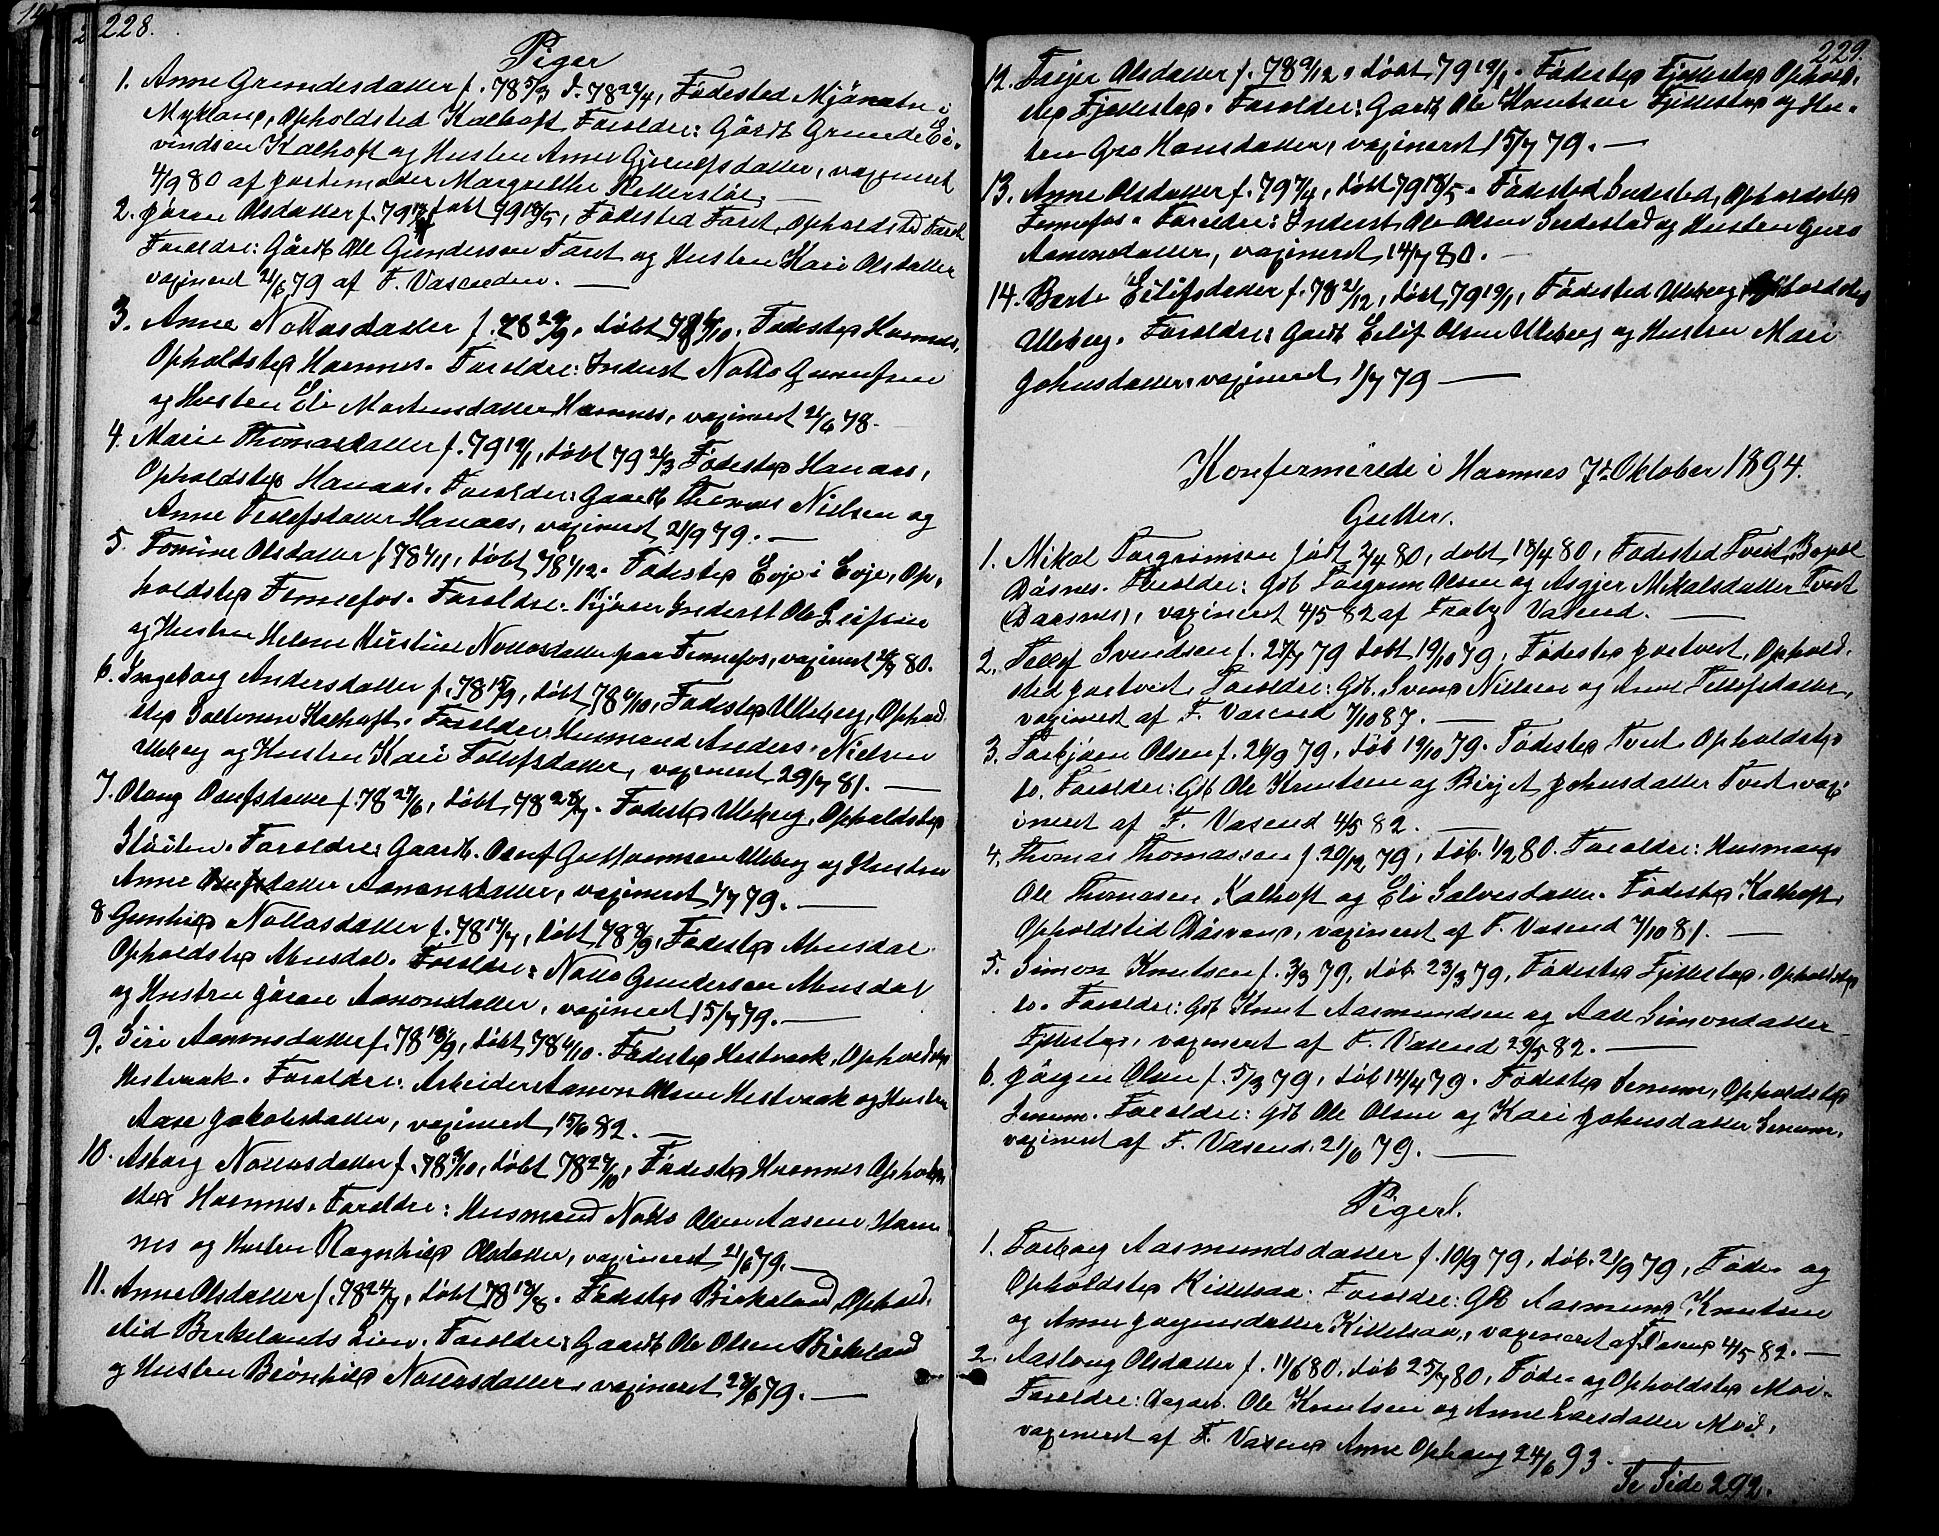 228.
Piger
1. Anne Grundesdatter f. 78 5/3 d. 78 22/4, Fødested i
Mykland, Opholdsted Kalhoft. Foreldre: Gårdb. Grunde Ei-
vindsen Kalhoft og Hustru Anne, vaxineret
4/9 80 af jordemoder Margrethe
2. Jöran Olsdatter f. 79 døbt 79 18/5, Fødested Faret, Opholdsted Faret
Foreldre: Gårdb. Ole Gundersen Faret og Hustru Kari Olsdatter
vaxineret 21/6 79 af F. Vasenden.
3. Anne Nottosdatter f. 78 29/9, døbt 78 6/10. Fødested Hornnes,
Opholdsted Hornnes. Foreldre: Inderst Notto
og Hustru Eli Mortensdatter Hornnes, vaxineret 21/6 78.
4. Marie Thomasdatter f. 79 19/1, døbt 79 23/3 Fødested Hanaas,
Opholdsted Hanaas. Foreldre: Gaardb. Thomas Nielsen og
Anne Tellefsdatter Hanaas, vaxineret 21/9 79.
5. Tomine Olsdatter f 78 4/11, døbt 78 1/12. Fødested Evje i Evje, Op-
holdsted Fennefos. Foreldre: Inderst Ole Leifsen
og Hustru Helene Nottosdatter paa Fennefos, vaxineret 80.
6. Ingeborg Andersdatter f. 78 15/9, døbt 78 6/10, Fødested Uleberg, Ophold-
sted Kalhoft. Foreldre: Husmand Anders Nielsen
Uleberg og Hustru Kari Tellefsdatter, vaxineret 29/7 81.
7. Olaug Olufsdatter f. 78 27/6, døbt 78 28/7. Fødested Uleberg, Opholdsted
Støilen. Foreldre: Gaardb. Oluf Guttormsen Uleberg og Hustru
Anne Aanonsdatter, vaxineret 1/7 79.
8 Gunhild Nottosdatter f. 78 17/7, døbt 78 8/9, Fødested Abusdal
Opholdsted Abusdal. Foreldre: Notto Gundersen Abusdal
og Hustru Jöran Aanonsdatter, vaxineret 15/7 79.
9. Siri Aanonsdatter f. 78 18/9, døbt 78 6/10. Fødested Hestvaak, Opholdsted
Hestvaak. Foreldre: Arbeider Aanon Olsen Hestvaak og Hustru
Aase Jakobsdatter, vaxineret 15/6 82.
10. Asborg Nottosdatter f. 78 9/10, døbt 78 27/10, Fødested Hornnes Ophold-
sted Hornnes. Foreldre: Husmand Notto Olsen Aasene Horn-
nes og Hustru Ragnhild Olsdatter, vaxineret 21/6 79.
11. Anne Olsdatter f. 78 24/7, døbt 78 18/8. Fødested Birkeland, Ophold-
sted Birkelands Lien. Foreldre: Gaardb. Ole Olsen Birkeland
og Hustru Brønhild Nottosdatter, vaxineret 28/6 79.
229.
12. Torjer Olsdatter f. 78 9/12, døbt 79 19/1. Fødested Fjellestad Ophold-
sted Fjellestad. Foreldre: Gaardb. Ole Knutsen Fjellestad og Hu-
stru Gro Hansdatter, vaxineret 15/7 79.
13. Anne Olsdatter f. 79 7/4, døbt 79 18/5. Fødested Indestad, Opholdsted
Fennefos. Foreldre: Inderst Ole Olsen Indestad og Hustru Guro
Aanonsdatter, vaxineret 14/7 80.
14. Berte Eilifsdatter f. 78 2/12, døbt 79 19/1, Fødested Uleberg, Opholdsted
Uleberg. Foreldre: Gardb. Eilif Olsen Uleberg og Hustru Mari
Johnsdatter, vaxineret 1/7 79
Konfirmerede i Hornnes 7de Oktober 1894.
Gutter.
1. Mikal Torgrimsen født 2/4 80, døbt 18/4 80, Fødested Tveit, Bopæl
Dåsnes. Foreldre: Gdb Torgrim Olsen og Asgjer Mikalsdatter Tveit
(Daasnes), vaxineret 4/5 82 af Fratz Vasend.
2. Tellef Svendsen f. 27/7 79 døbt 19/10 79, Fødested Jortveit, Ophold-
sted Jortveit, Foreldre: Gdb. Svend Nielsen og Anne Tellefsdatter,
vaxineret af F. Vasend 7/10 87.
3. Torbjørn Olsen f. 26/9 79, døb. 19/10 79. Fødested Tveit Opholdsted
do. Foreldre: Gdb Ole Knutsen og Birjet Johnsdatter Tveit, vax-
ineret af F. Vasend 4/5 82.
4. Thomas Thomassen f. 20/12 79, døb. 1/2 80. Foreldre: Husmand
Ole Thomasen Kalhoft og Eli Salvesdatter. Fødested Kalhoft,
Opholdsted Dåsvand, vaxineret af F. Vasend 7/10 81.
5. Simon Knutsen f. 3/3 79, døb. 23/3 79, Fødested Fjellestad, Opholdsted
do. Foreldre: Gdb Knut Aasmundsen og Aase Simonsdatter
Fjellestad, vaxineret af F. Vasend 29/5 82.
6. Jörgen Olsen f. 5/3 79, døb 14/4 79. Fødested Senum, Opholdsted
Senum. Foreldre: Gdb Ole Olsen og Kari Johnsdatter Senum,
vaxineret af F. Vasend 21/6 79.
Piger.
1. Torborg Aasmundsdatter f. 10/9 79, døb. 21/9 79, Føde- og
Opholdsted Killelsaa. Foreldre: Gdb Aasmund Knutsen
og Anne Jørgensdatter Killelsaa, vaxineret af F. Vasend 4/5 82.
2. Aaslaug Olsdatter f. 11/6 80. døb 25/7 80, Føde- og Opholdsted Moi.
Foreldre: Ole Knutsen og Anne Larsdatter Moi,
vaxineret af F. Vasend Anne Ophaug 24/6 93.
Se Side 292.